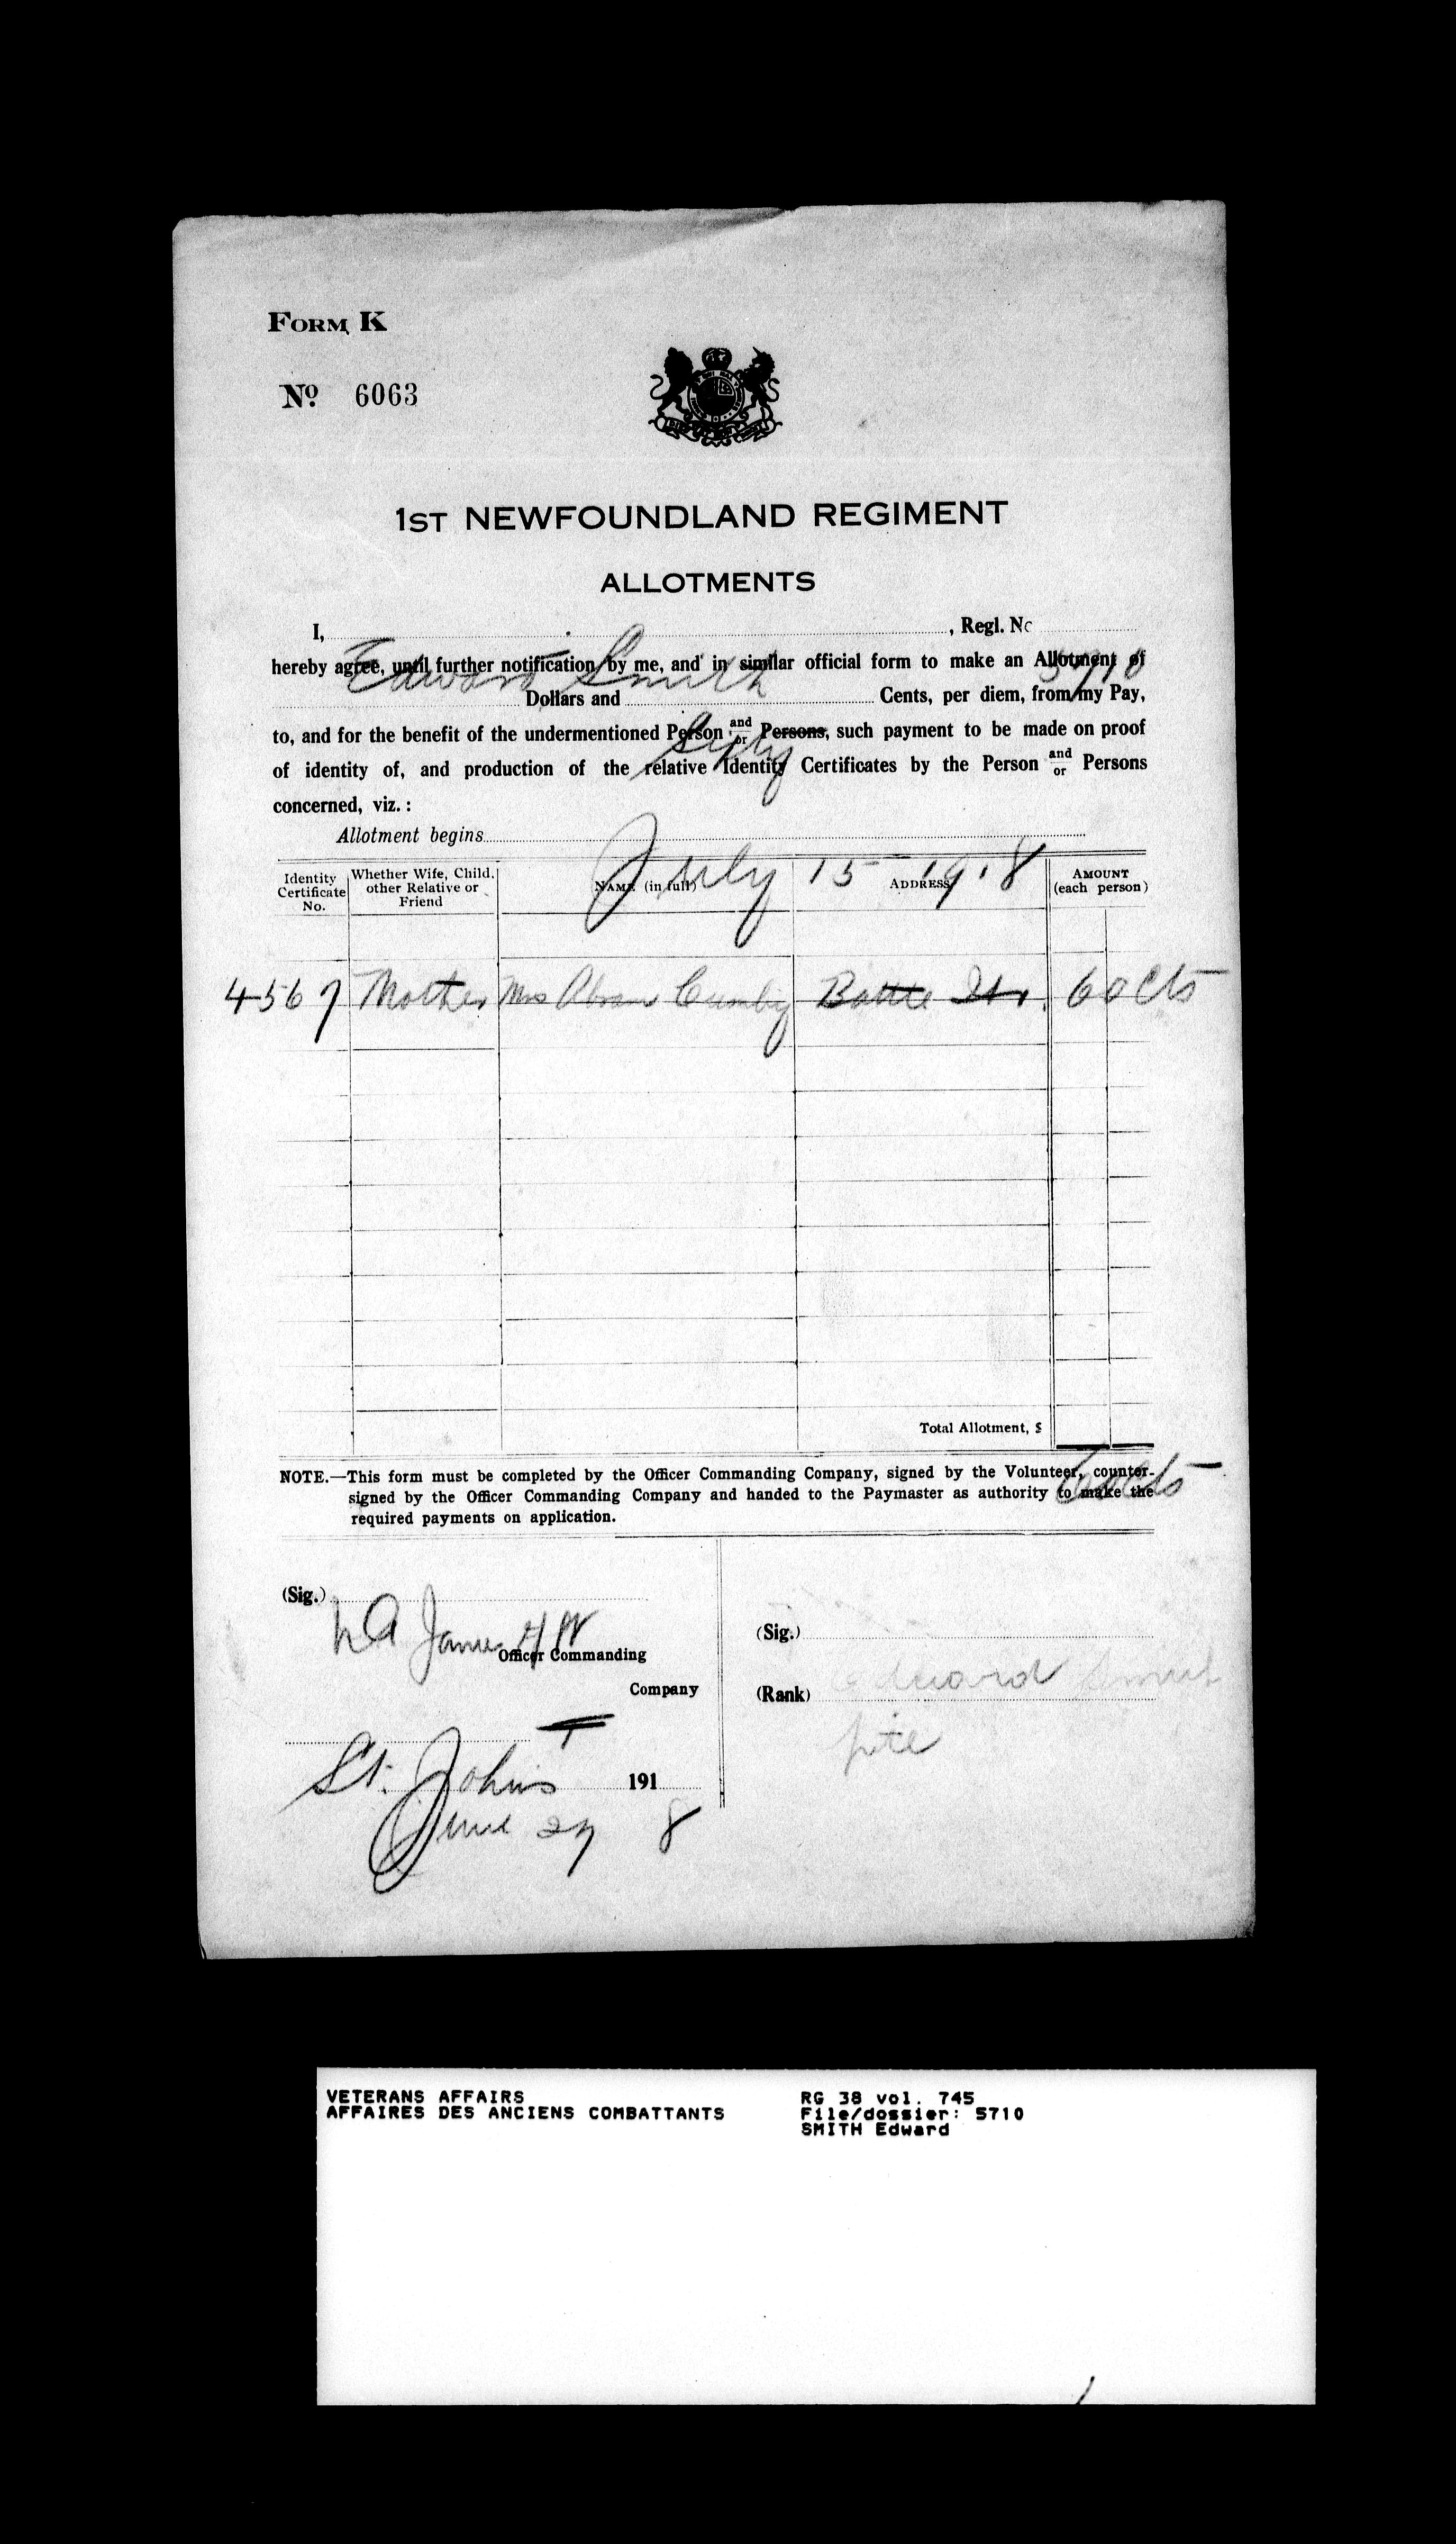 FORM K
No 6063
1ST NEWFOUNDLAND REGIMENT
ALLOTMENTS
I, Edward Smith, Regl. No 5710
hereby agree, until further notification by me, and in similar official form to make an Allotment of
Dollars and Sixty Cents, per diem, from my Pay,
to, and for the benefit of the undermentioned Person and/or Persons, such payment to be made on proof
of identity of, and production of the relative Identity Certificates by the Person and/or Persons
concerned, viz. :
Allotment begins July 15 1918
Identity Certificate No. Whether Wife, Child, other Relative or Friend NAME (in full) ADDRESS AMOUNT (each person)
4567 Mother Mrs 60 Cts
Total Allotment, $ 60 Cts
NOTE.—This form must be completed by the Officer Commanding Company, signed by the Volunteer, counter-
signed by the Officer Commanding Company and handed to the Paymaster as authority to make the
required payments on application.
(Sig.) James
Officer Commanding
Company
St. John's
June 27 1918
(Sig.) Edward Smith
(Rank) pte
VETERANS AFFAIRS
AFFAIRES DES ANCIENS COMBATTANTS
RG 38 vol. 745
File/dossier: 5710
SMITH Edward